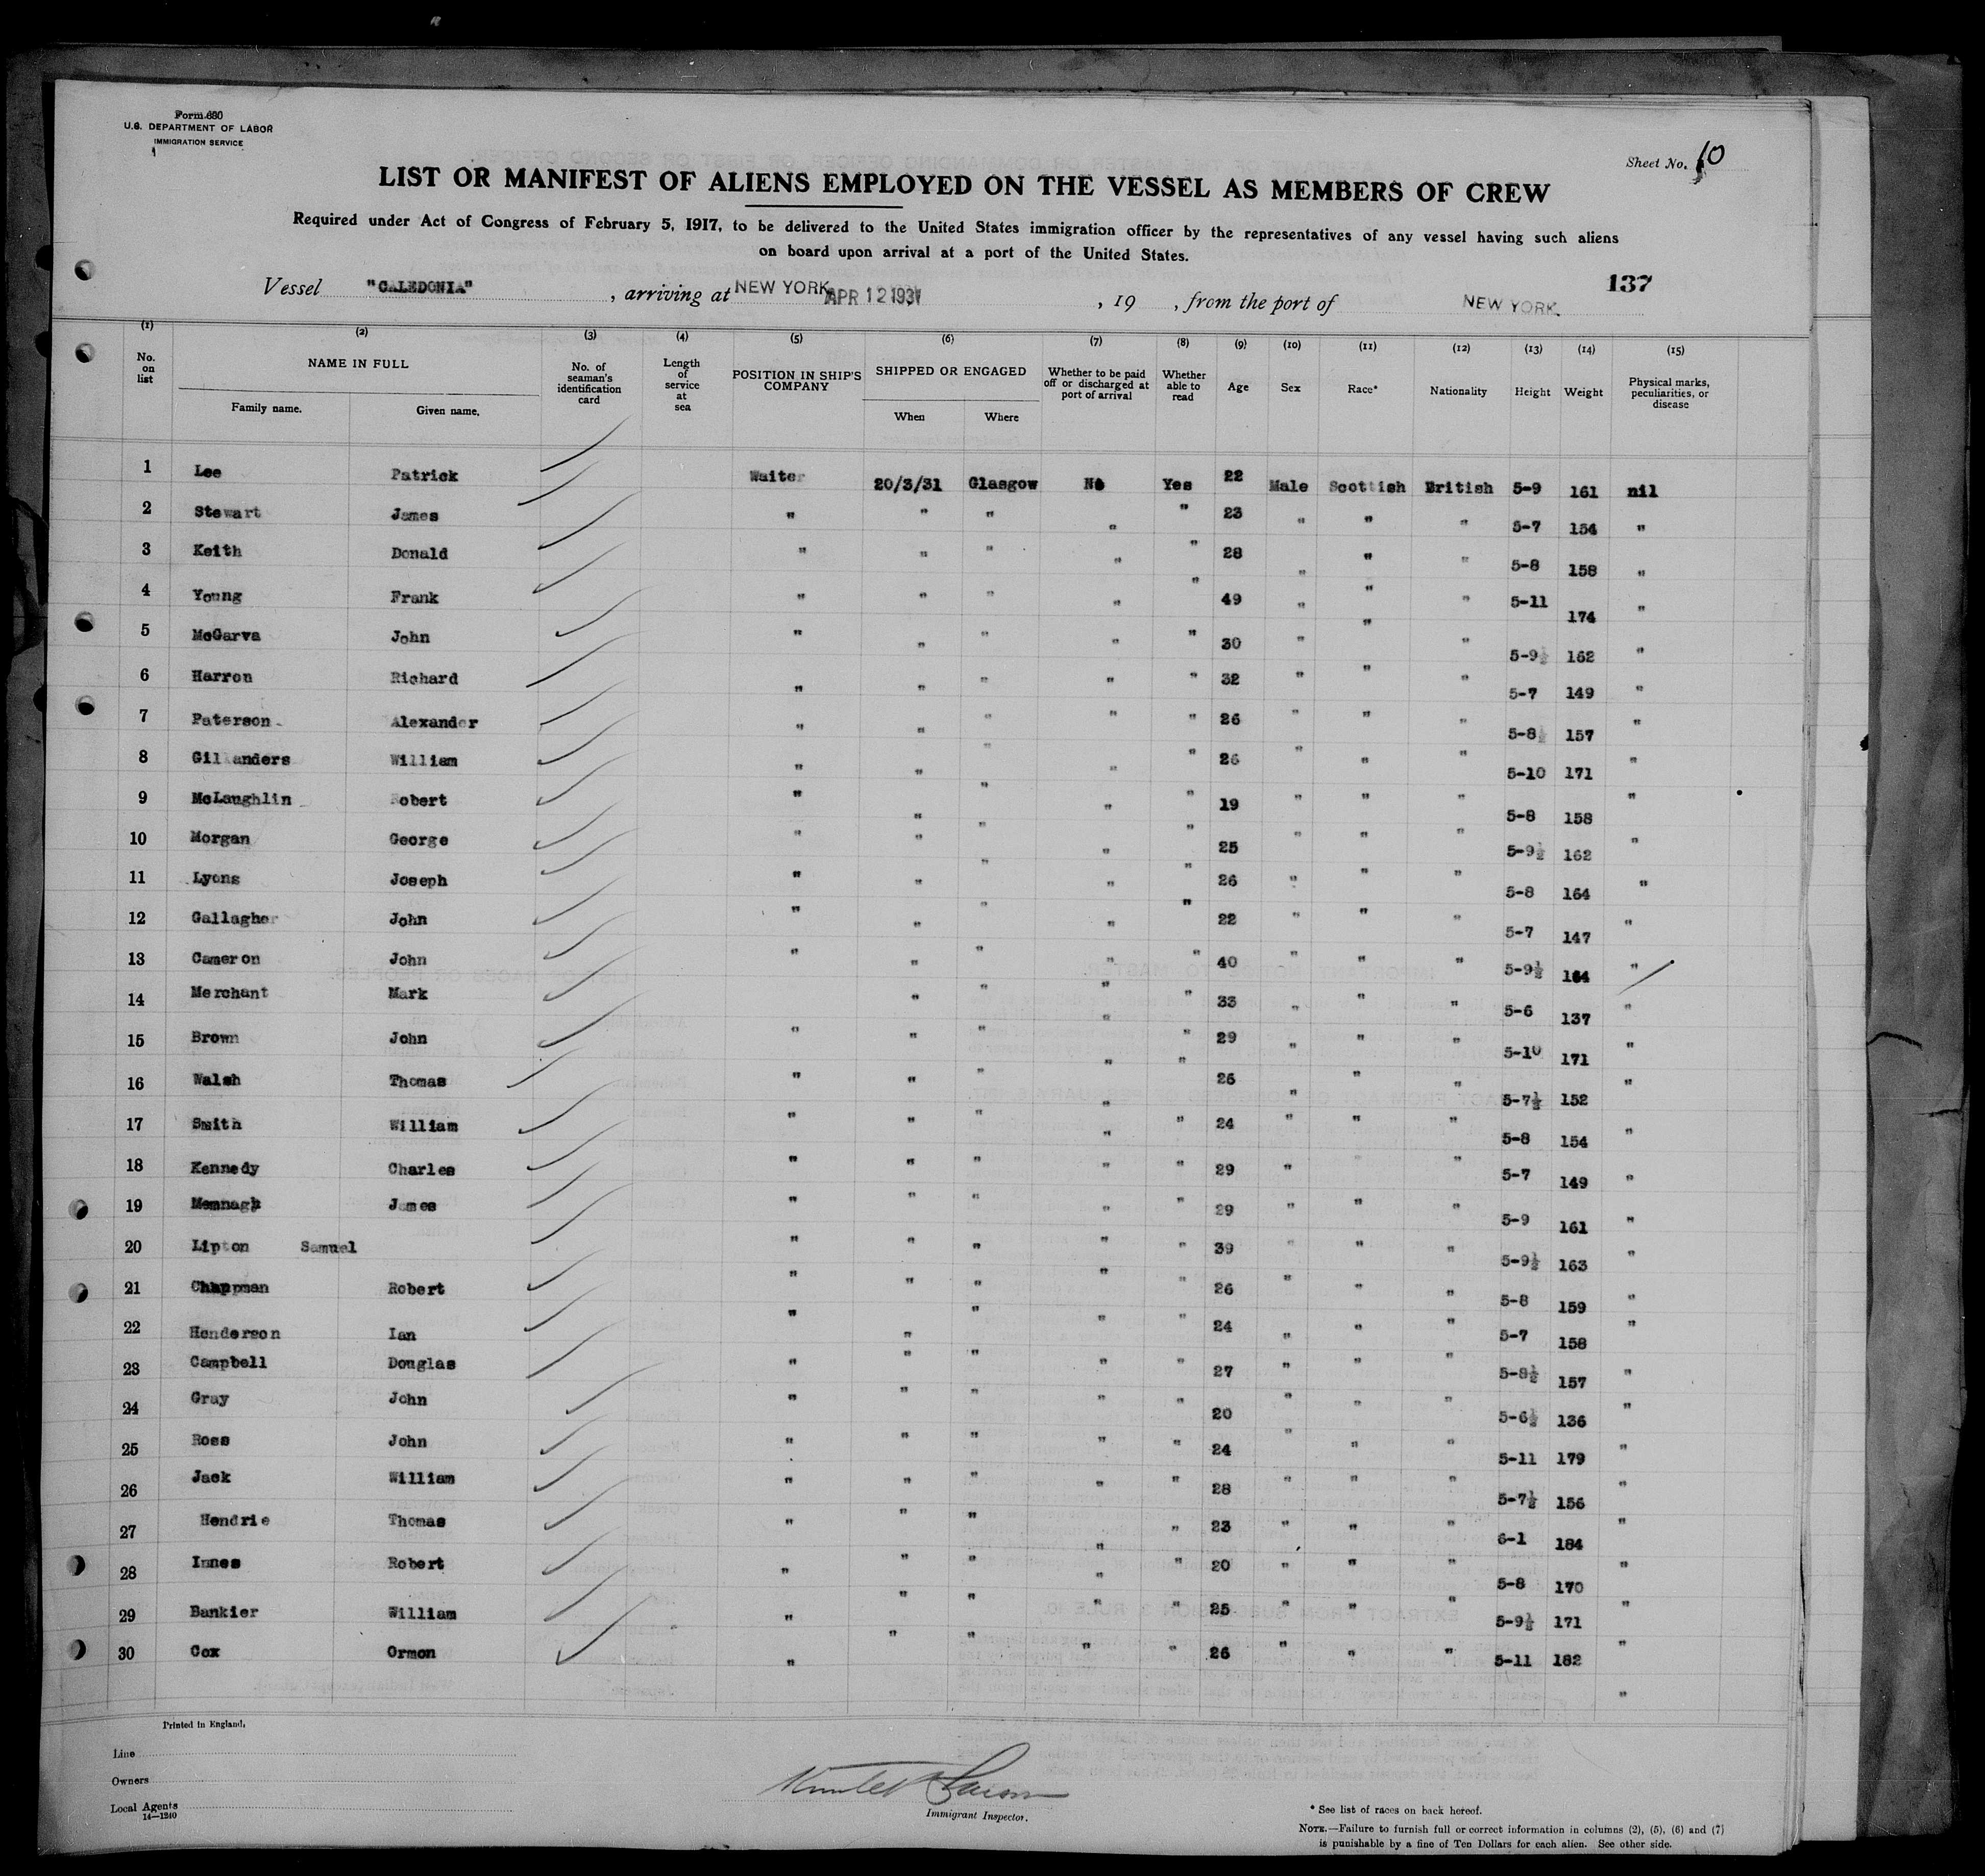 Form 680
U.S. DEPARTMENT OF LABOR
IMMIGRATION SERVICE
Sheet No. 10
LIST OR MANIFEST OF ALIENS EMPLOYED ON THE VESSEL AS MEMBERS OF CREW
Required under Act of Congress of February 5, 1917, to be delivered to the United States immigration officer by the representatives of any vessel having such aliens
on board upon arrival at a port of the United States.
137
Vessel "CALEDONIA", arriving at NEW YORK APR 12 1931, 19 , from the port of NEW YORK.
(1) (2) (3) (4) (5) (6) (7) (8) (9) (10) (11) (12) (13) (14) (15)
No. on list NAME IN FULL Family name. Given name. No. of seaman's identification card Length of service at sea POSITION IN SHIP'S COMPANY SHIPPED OR ENGAGED When Where Whether to be paid off or discharged at port of arrival Whether able to read Age Sex Race* Nationality Height Weight Physical marks, peculiarities, or disease
1 Lee Patrick Waiter 20/3/31 Glasgow No Yes 22 Male Scottish British 5-9 161 nil
2 Stewart James " " " " " 23 " " " 5-7 154 "
3 Keith Donald " " " " " 28 " " " 5-8 158 "
4 Young Frank " " " " " 49 " " " 5-11 174 "
5 McGarva John " " " " " 30 " " " 5-9½ 162 "
6 Harron Richard " " " " " 32 " " " 5-7 149 "
7 Paterson Alexander " " " " " 26 " " " 5-8½ 157 "
8 Gillanders William " " " " " 26 " " " 5-10 171 "
9 McLaughlin Robert " " " " " 19 " " " 5-8 158 "
10 Morgan George " " " " " 25 " " " 5-9½ 162 "
11 Lyons Joseph " " " " " 26 " " " 5-8 164 "
12 Gallagher John " " " " " 22 " " " 5-7 147 "
13 Cameron John " " " " " 40 " " " 5-9½ 164 "
14 Merchant Mark " " " " 33 " " " 5-6 137 "
15 Brown John " " " " " 29 " " " 5-10 171 "
16 Walsh Thomas " " " " " 26 " " " 5-7½ 152 "
17 Smith William " " " " " 24 " " " 5-8 154 "
18 Kennedy Charles " " " " " 29 " " " 5-7 149 "
19 Mennagh James " " " " " 29 " " " 5-9 161 "
20 Lipton Samuel " " " " " 39 " " " 5-9½ 163 "
21 Chapman Robert " " " " " 26 " " " 5-8 159 "
22 Henderson Ian " " " " " 24 " " " 5-7 158 "
23 Campbell Douglas " " " " " 27 " " " 5-8½ 157 "
24 Gray John " " " " " 20 " " " 5-6½ 136 "
25 Ross John " " " " " 24 " " " 5-11 179 "
26 Jack William " " " " " 28 " " " 5-7½ 156 "
27 Hendrie Thomas " " " " " 23 " " " 6-1 184 "
28 Innes Robert " " " " " 20 " " " 5-8 170 "
29 Bankier William " " " " " 25 " " " 5-9½ 171 "
30 Cox Ormon " " " " " 26 " " " 5-11 182 "
Printed in England.
Line
Owners
Local Agents
14—1240
Immigrant Inspector.
* See list of races on back hereof.
NOTE.—Failure to furnish full or correct information in columns (2), (5), (6) and (7)
is punishable by a fine of Ten Dollars for each alien. See other side.